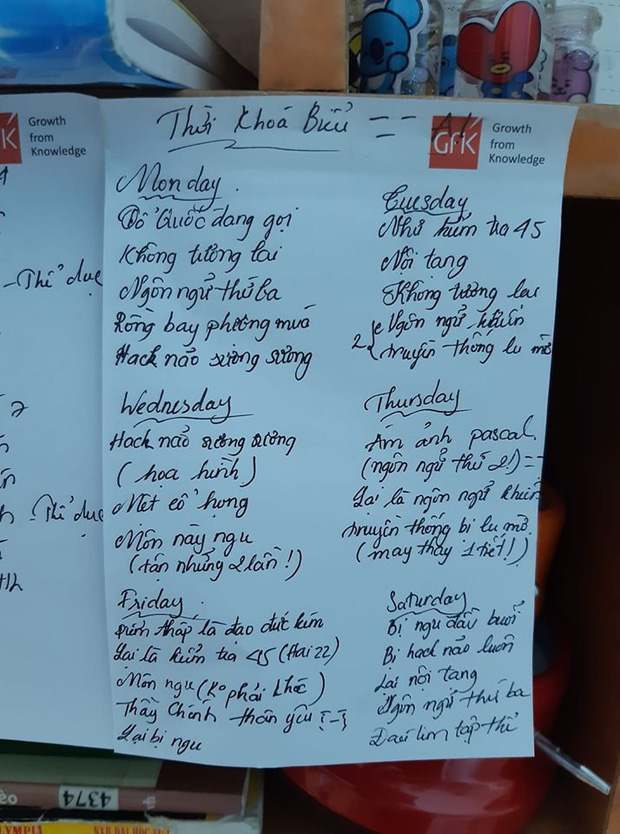 Growth
from
Knowledge
Thời Khoá Biểu == A1
GfK
Growth
from
Knowledge
-Thể dục
-Thể dục
Monday
Tổ Quốc đang gọi
Không tương lai
Ngôn ngữ thứ ba
Rồng bay phượng múa
Hack não sương sương
Tuesday
Như kiểm tra 45
Nội tạng
Không tương lai
Ngôn ngữ khiến
2 truyền thống lu mờ
Wednesday
Hack não sương sương
(họa hình)
Mệt cổ họng
Môn này ngu
(tận những 2 lần!)
Thursday
Ám ảnh pascal.
(ngôn ngữ thứ 2!) ==
Lại là ngôn ngữ khiến
truyền thống bị lu mờ
(may thay 1 tiết!)
Friday
Điểm thấp là đạo đức kém
Lại là kiểm tra 45 (Hai 22)
Môn ngu (ko phải khóc)
Thầy Chánh thân yêu
Lại bị ngu
Saturday
Bị ngu đầu buổi
Bị hack não luôn
Lại nội tạng
Ngôn ngữ thứ ba
Đau tim tập thể
4374
OLYMPIA